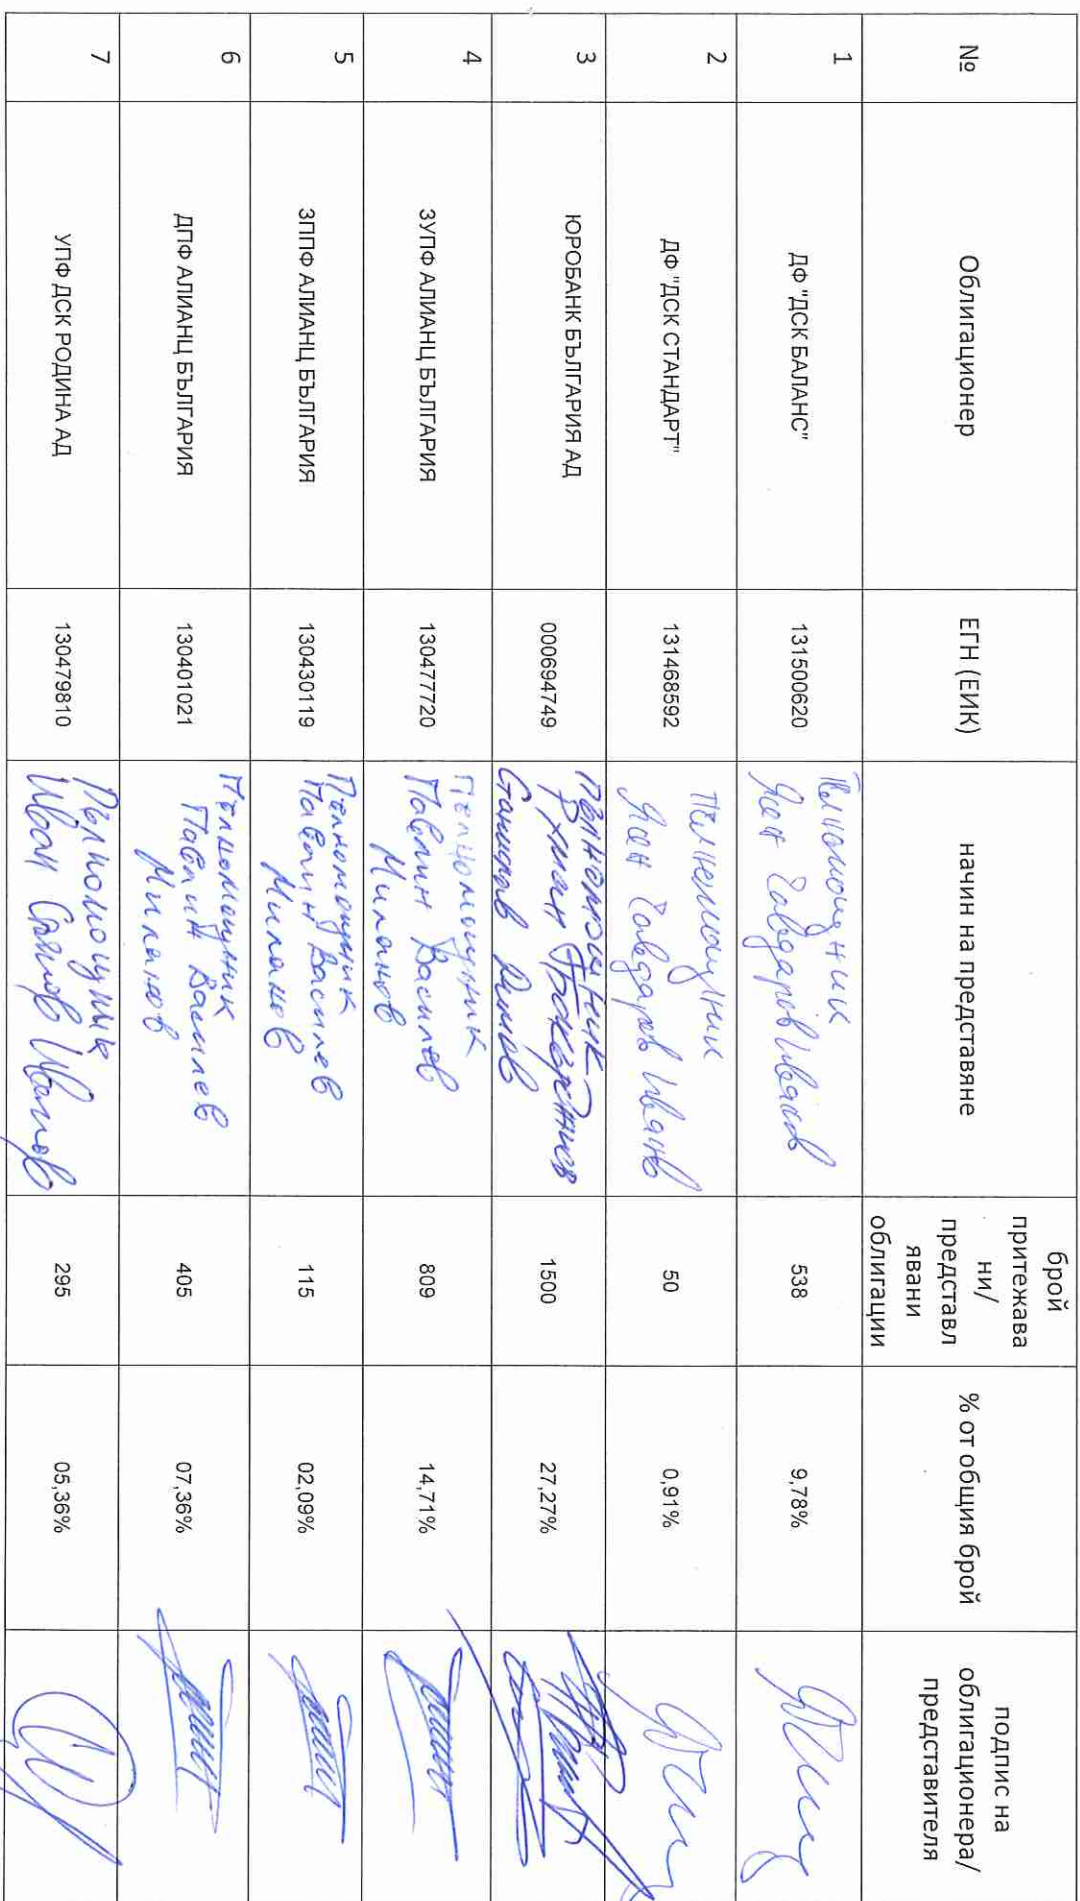 №
Облигационер
ЕГН (ЕИК)
начин на представяне
брой
притежава
ни/
представл
явани
облигации
% от общия брой
подпис на
облигационера/
представителя
1
ДФ "ДСК БАЛАНС"
131500620
Пълномощник
Явор Иванов
538
9,78%
2
ДФ "ДСК СТАНДАРТ"
131468592
Пълномощник
50
0,91%
3
ЮРОБАНК БЪЛГАРИЯ АД
000694749
1500
27,27%
4
ЗУПФ АЛИАНЦ БЪЛГАРИЯ
130477720
Пълномощник
Павлин Василев
Миланов
809
14,71%
5
ЗППФ АЛИАНЦ БЪЛГАРИЯ
130430119
Пълномощник
Павлин Василев
Миланов
115
02,09%
6
ДПФ АЛИАНЦ БЪЛГАРИЯ
130401021
Пълномощник
Павлин Василев
Миланов
405
07,36%
7
УПФ ДСК РОДИНА АД
130479810
Пълномощник
Иван Иванов
295
05,36%